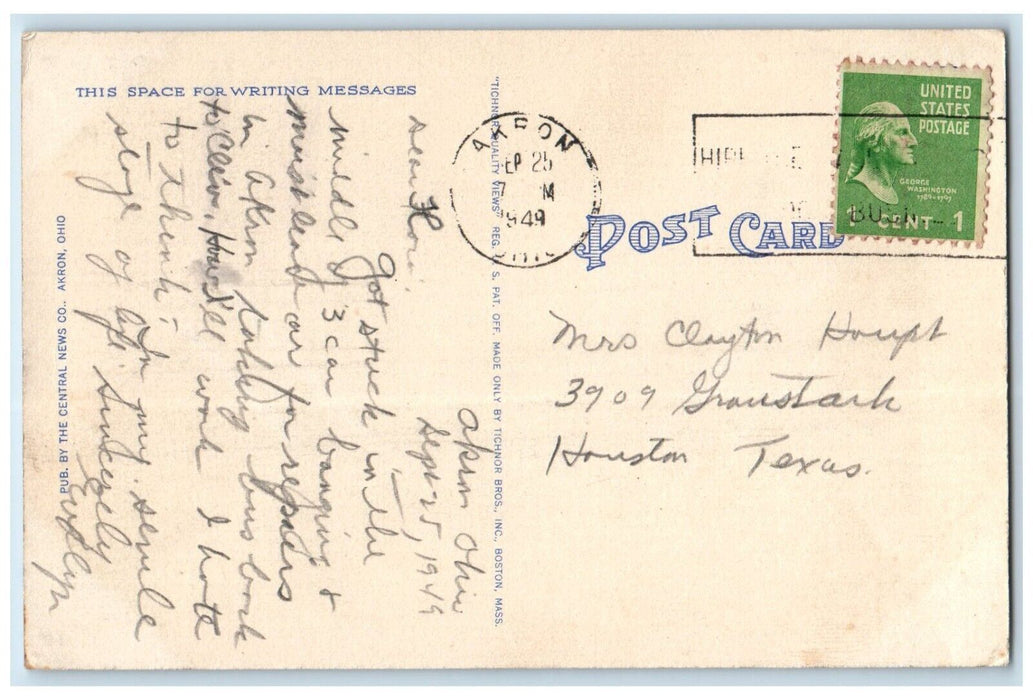 THIS SPACE FOR WRITING MESSAGES
Akron Ohio
Sept-25, 1949
Dear
Got stuck in the
middle of 3 car banging &
must leave car for repairs
in Akron taking bus back
to Cleve, How I'll work I hate
to think;
sloge of my senile
Sincerely
Evelyn
PUB. BY THE CENTRAL NEWS CO., AKRON, OHIO
"TICHNOR QUALITY VIEWS" REG. U. S. PAT. OFF. MADE ONLY BY TICHNOR BROS., INC., BOSTON, MASS.
AKRON
SEP 25
7 M
1949
OHIO
UNITED
STATES
POSTAGE
GEORGE
WASHINGTON
1789-1797
1 CENT 1
POST CARD
Mrs Clayton Houpt
3909 Graustark
Houston Texas.